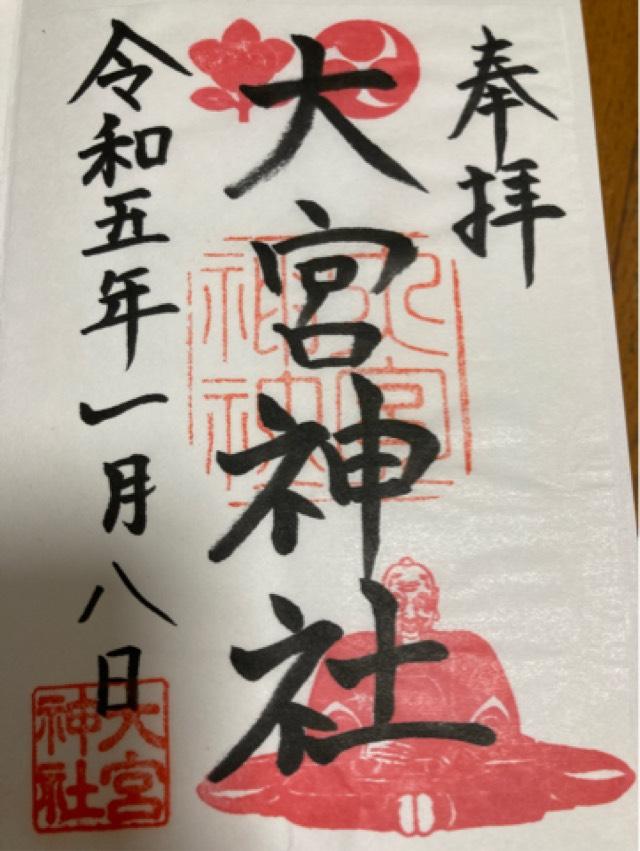 奉拝
大宮神社
令和五年一月八日
大宮
神社
大宮
神社